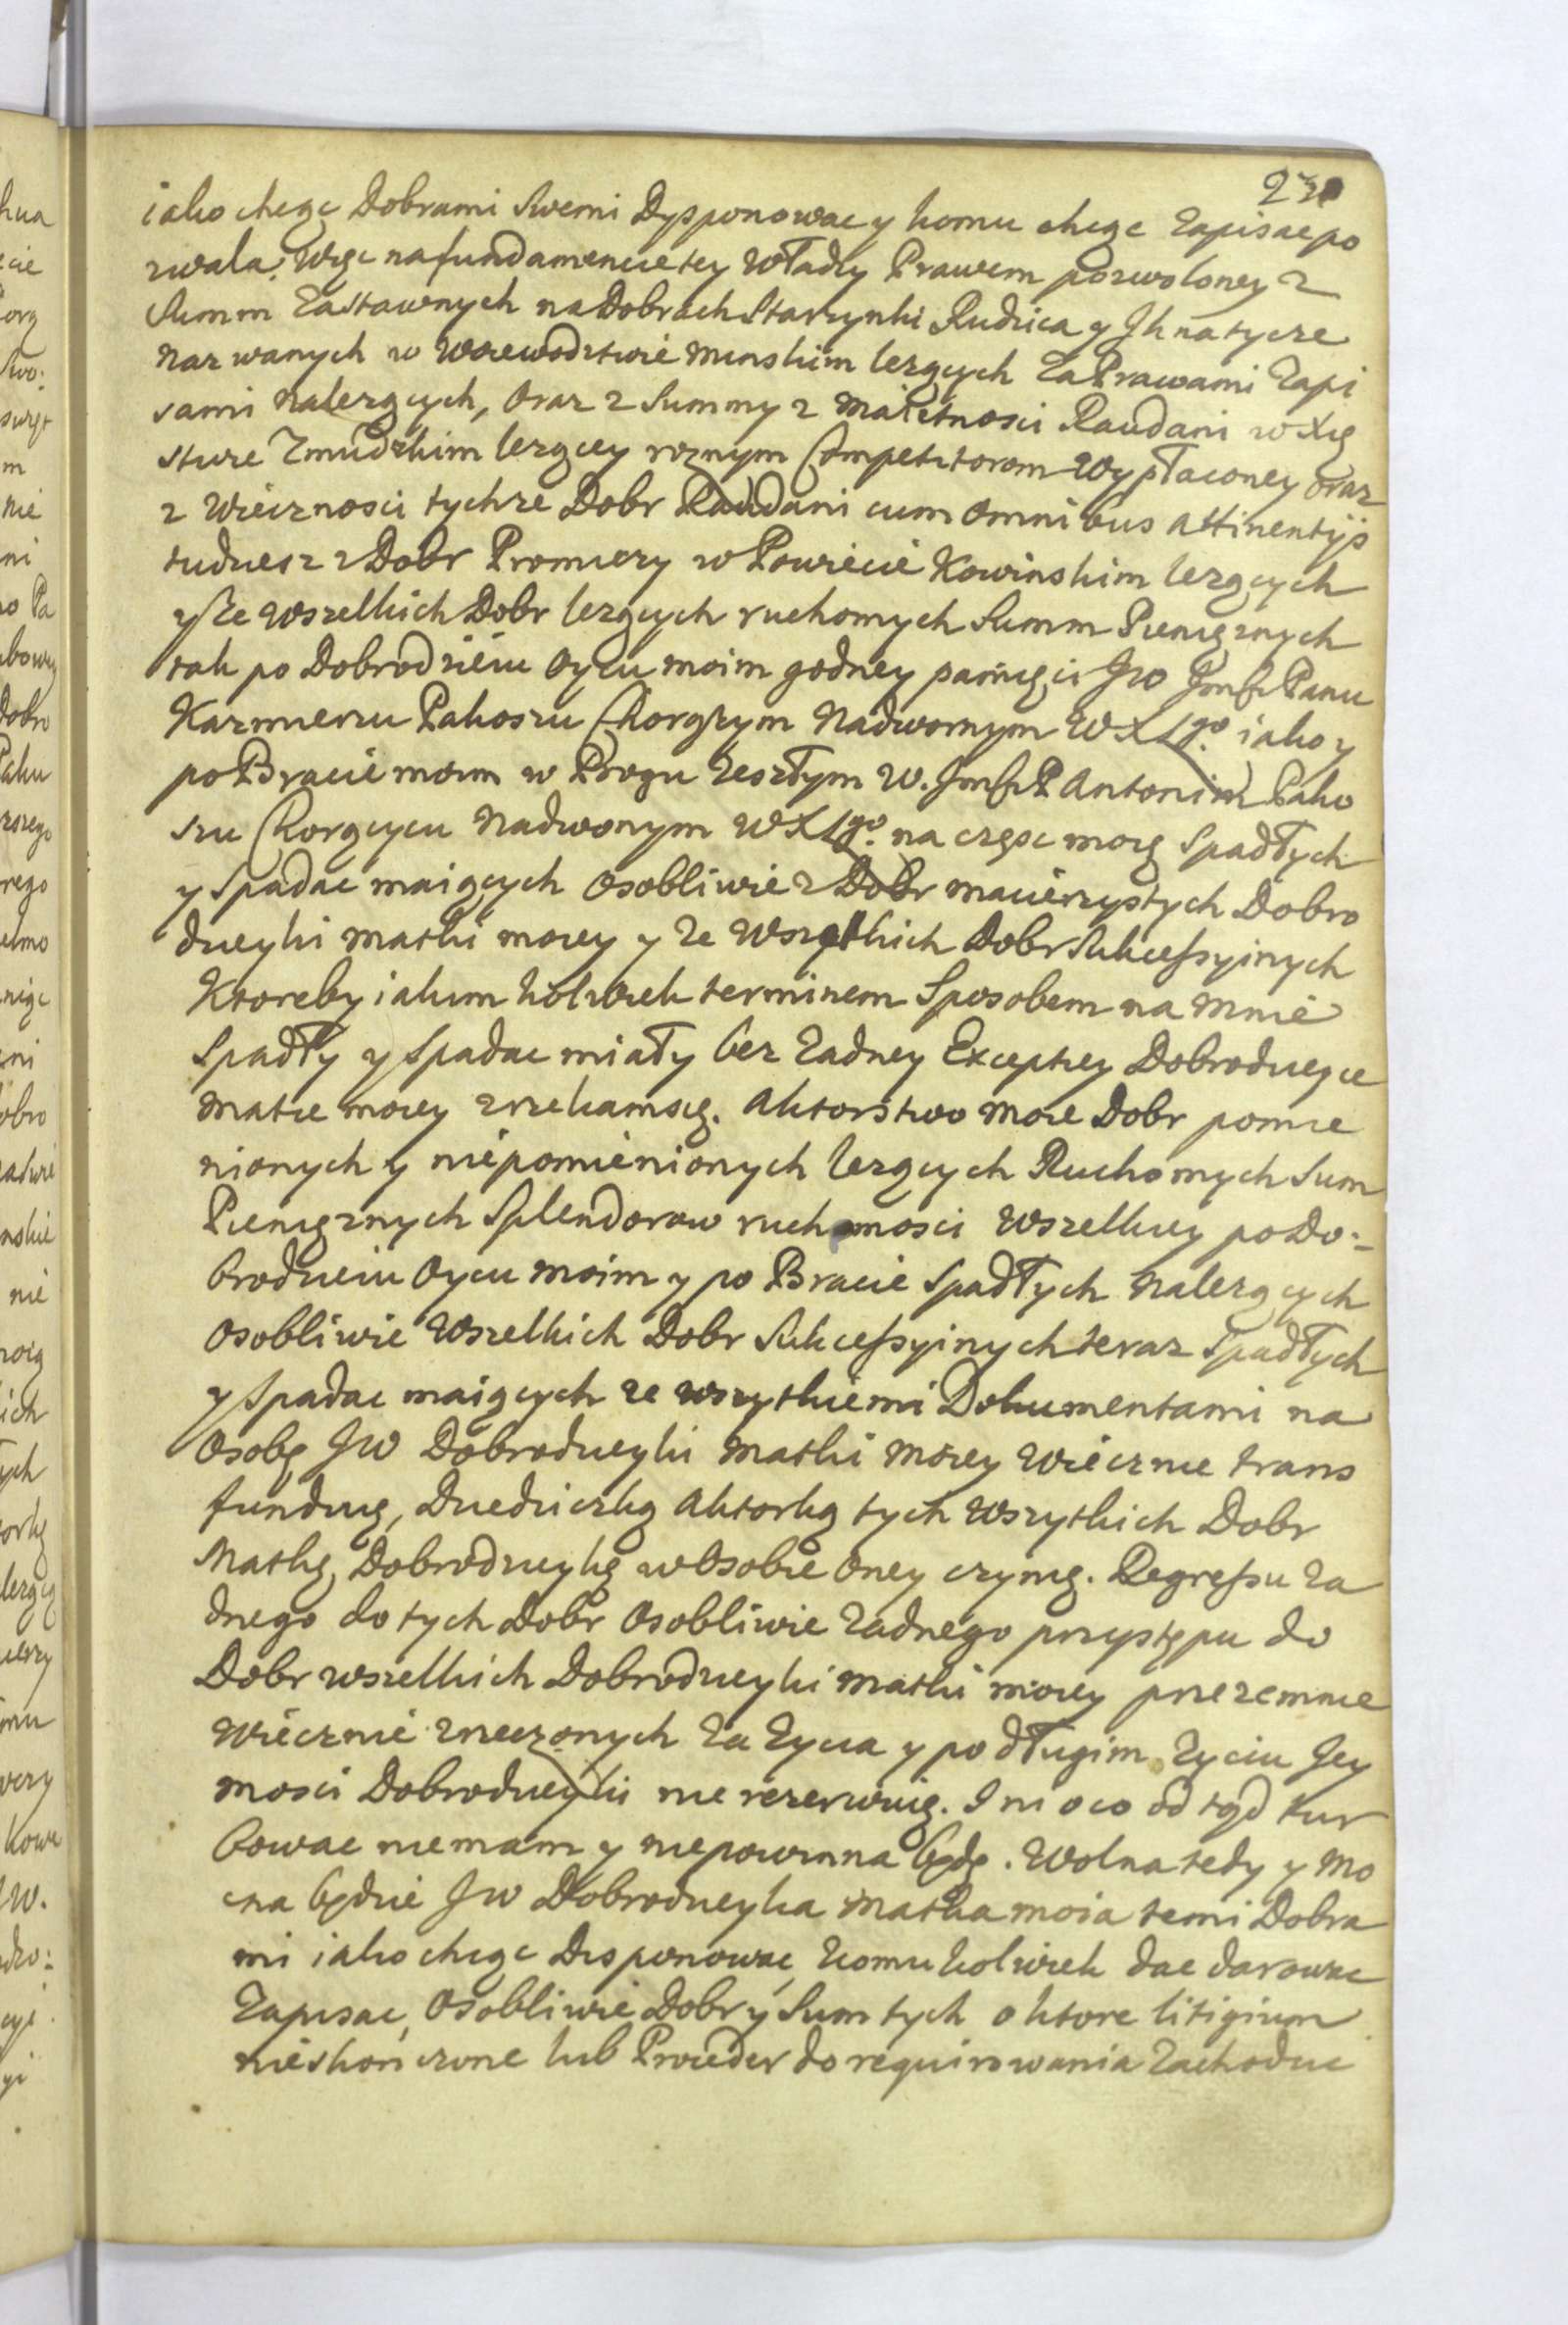 iako chcąc Dobrami Swemi Dysponowac y komu chcąc Zapisac po
zwala, Więc na fundamencie tey Władzy Prawem pozwoloney z
Summ Zastawnych na Dobrach Starzynki Rudzica y Ihnatycze
nazwanych w Woiewodztwie Minskim lezących Za Prawami Zapi
sami nalezących, Oraz z Summy z Maiętnosci Raudani w Xię
stwie Zmudzkim lezącey roznym Competitorom Wypłaconey oraz
z Wiecznosci tychze Dobr Raudani cum omnibus attinentijs
tudziesz z Dobr Promiezy w Powiecie Kowinskim lezących
y Ze Wszelkich Dobr lezących ruchomych Summ Pienięznych
tak po Dobrodzieiu Oycu moim godney pamięci JW Jmści Panu
Kazimierzu Pakoszu Chorązym Nadwornym WXLgo. iako y
po Bracie moim w Progu Zeszłym W. Jmści P Antonim Pako
szu Chorązycu Nadwonym WXLgo. na częsc moię Spadłych
y Spadac maiących Osobliwie z Dobr macierzystych Dobro
dzieyki matki moiey y Ze Wszelkich Dobr Sukcessyinych
Ktoreby iakim kolwiek terminem Sposobem na mnie
Spadły y Spadac miały bez Zadney Exceptiey Dobrodzieyce
Matce moiey zrzekamsię. Aktorstwo moie Dobr pomie
nionych y niepomienionych lezących Ruchomych Sum
Pienięznych Splendorow ruchomosci Wszelkiey po Do:
brodzieiu Oycu moim y po Bracie Spadłych nalezących
Osobliwie Wszelkich Dobr Sukcessyinych teraz Spadłych
y Spadac maiących ze wszytkiemi Dokumentami na
Osobę JW Dobrodzieyki Matki moiey Wiecznie trans
funduię, Dziedziczkę Aktorkę tych Wszytkich Dobr
Matkę, Dobrodzieykę w Osobie Oney czynię. Regressu Za
dnego do tych Dobr Osobliwie Zadnego przystępu do
Dobr wszelkich Dobrodzieyki matki moiey przezemnie
Wiecznie zrzeczonych Za Zycia y po długim Zyciu Jey
mosci Dobrodzieyki nie rezerwuię. I ni o co od tąd tur
bowac niemam y niepowinna będę. Wolna tedy y Mo
cna będzie JW Dobrodzieyka Matka moia temi Dobra
mi iako chcąc Disponowac, Komukolwiek dac darowac
Zapisac, Osobliwie Dobr y Sum tych o ktore litigium
nieskonczone lub Proceder do requirowania Zachodzi